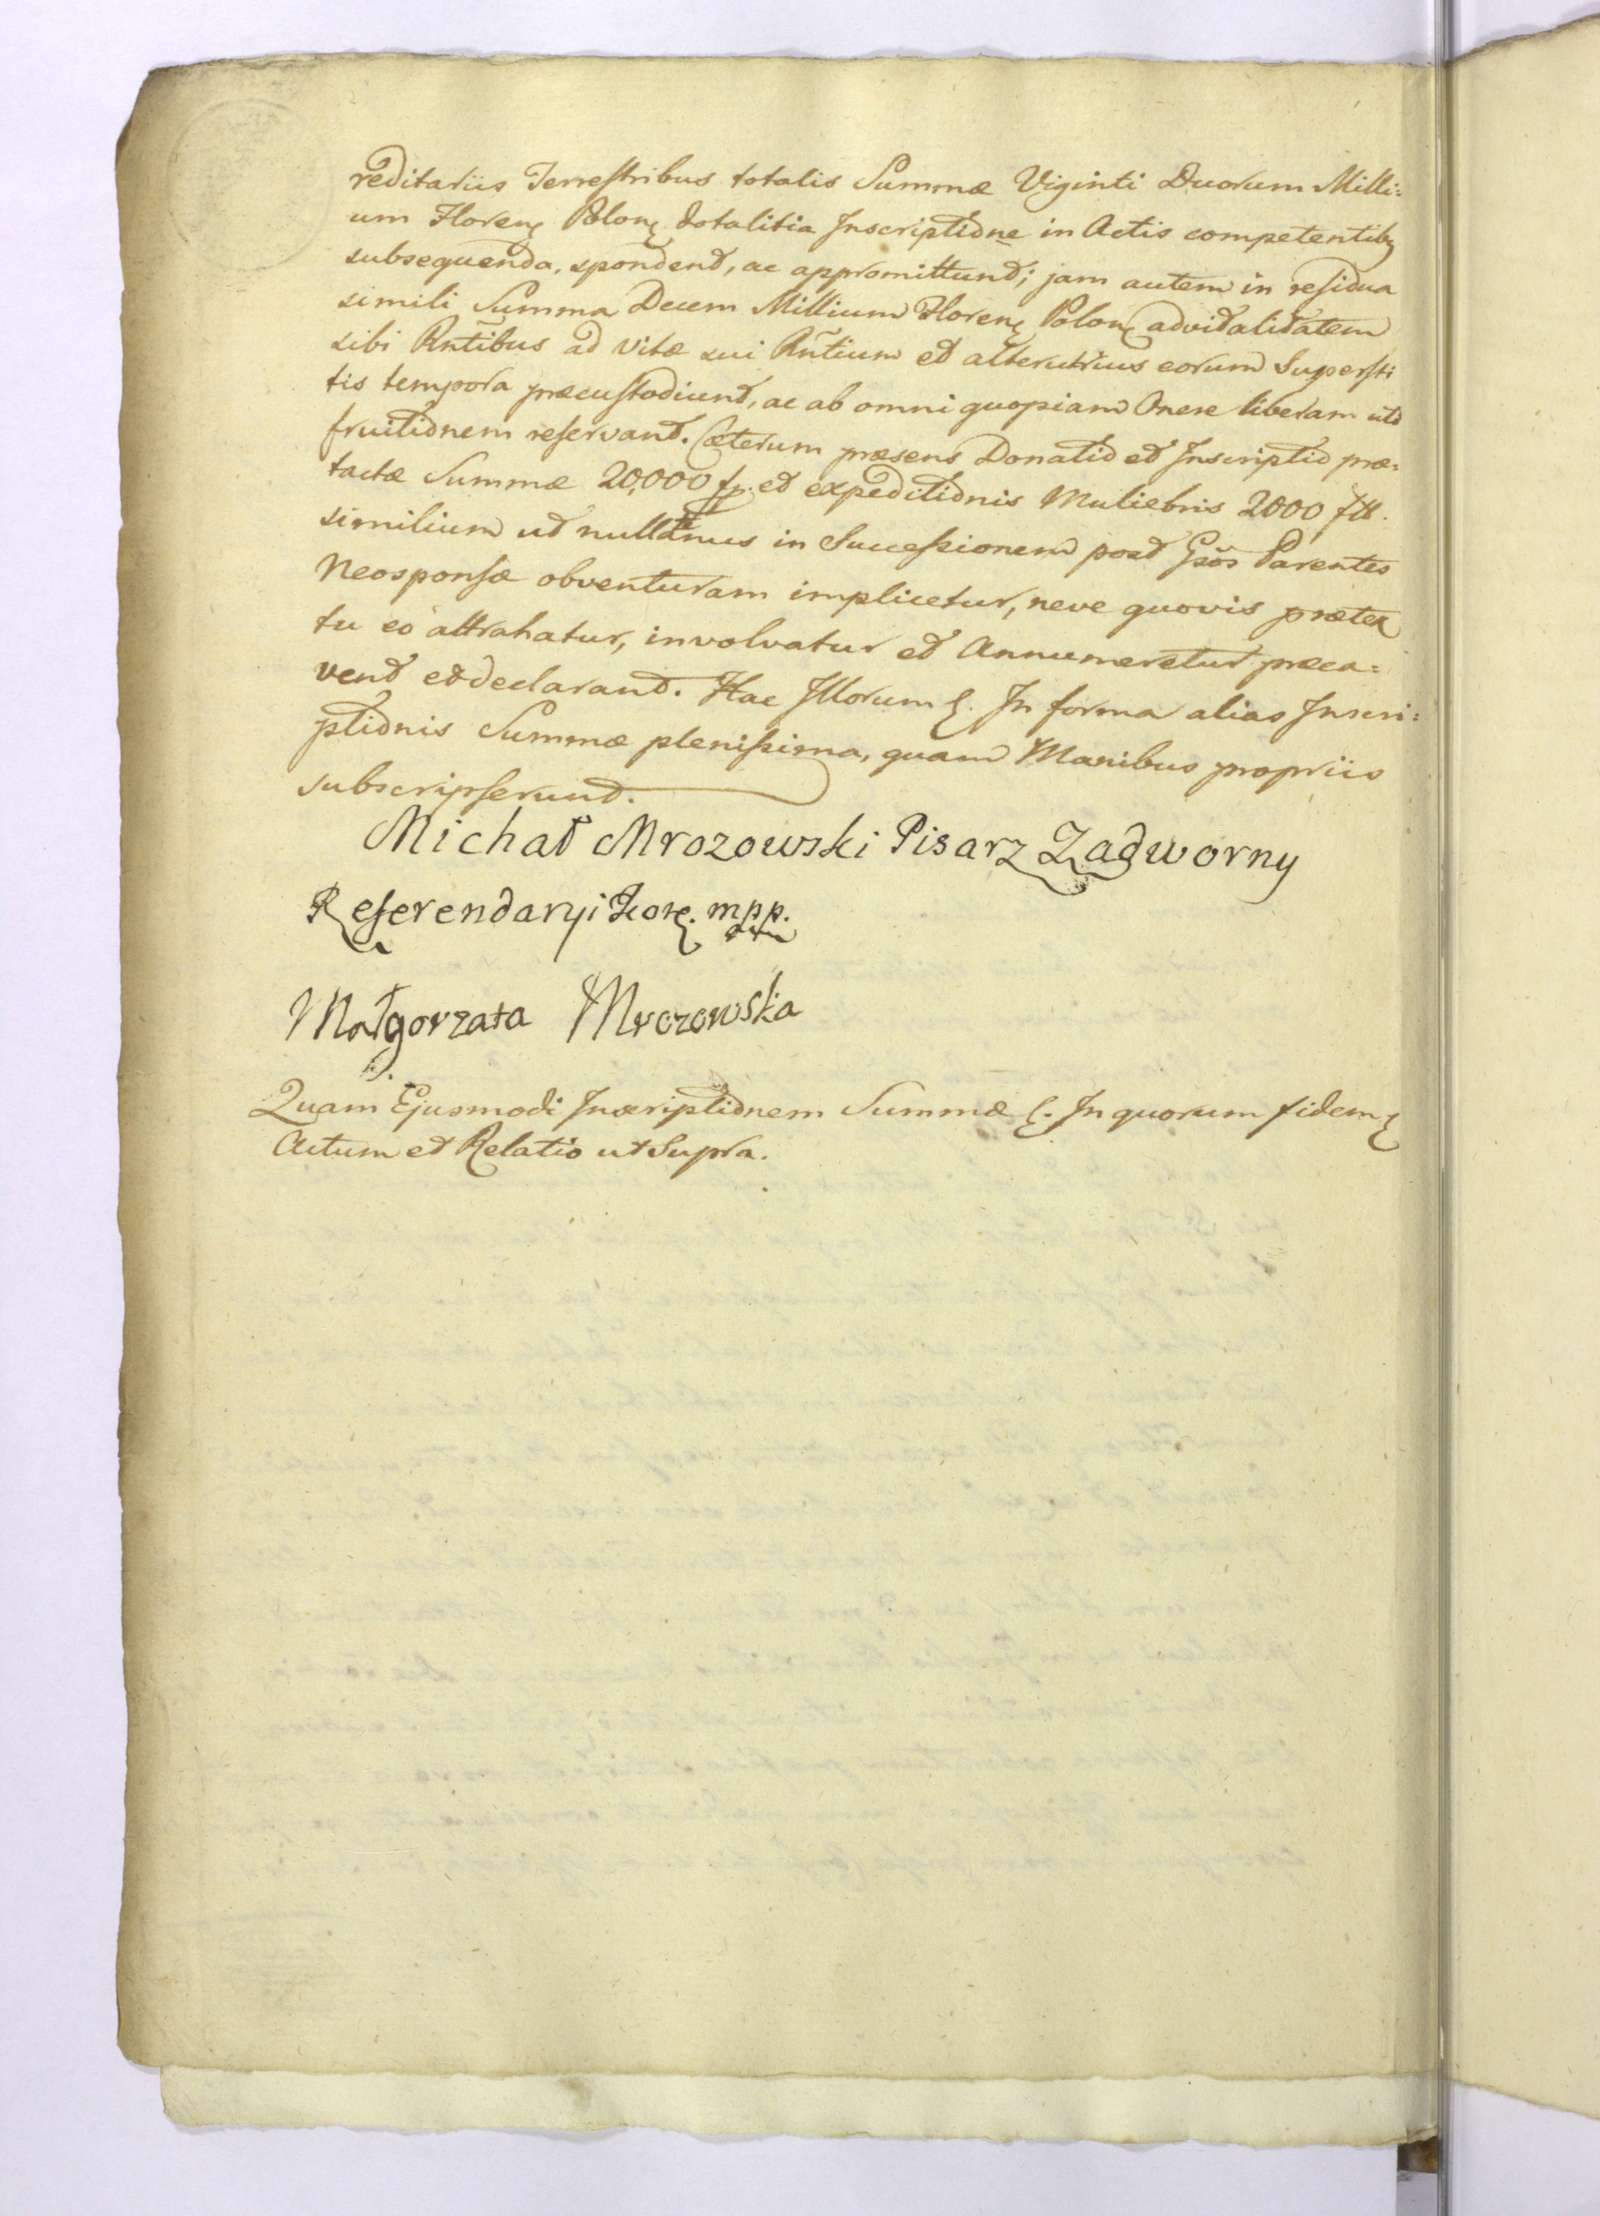 reditariis Terrestribus totalis Summæ Viginti Duorum Milli:
um Floren. Polon. dotalitia Inscriptione in Actis competentibz
subsequenda, spondent, ac appromittunt; jam autem in residua
simili Summa Decem Millium Floren. Polon. advitalitatem
sibi Rñtibus ad vitæ sui Rñtium et alterutrius eorum Supersti
tis tempora præcustodiunt, ac ab omni quopiam Onere liberam
fruitionem reservant. Cæterum præsens Donatio et Inscriptio præ:
tactæ Summæ 20,000 fp. et expeditionis Muliebris 2000 fll.
similium ut nullatenus in Successionem post Gsos Parentes
Neosponsæ obventuram implicetur, neve quovis prætex
tu eo attrahatur, involvatur et Annumeretur præca:
vent et declarant. Hac Illorum &. In forma alias Inscri:
ptionis Summæ plenissima, quam Manibus propriis
subscripserunt.
Michał Mrozowski Pisarz Zadworny
Referendaryi Kor. mpp.
Małgorzata Mrozowska
Quam Ejusmodi Inscriptionem Summæ &. In quorum fidem &
Actum et Relatio ut Supra.